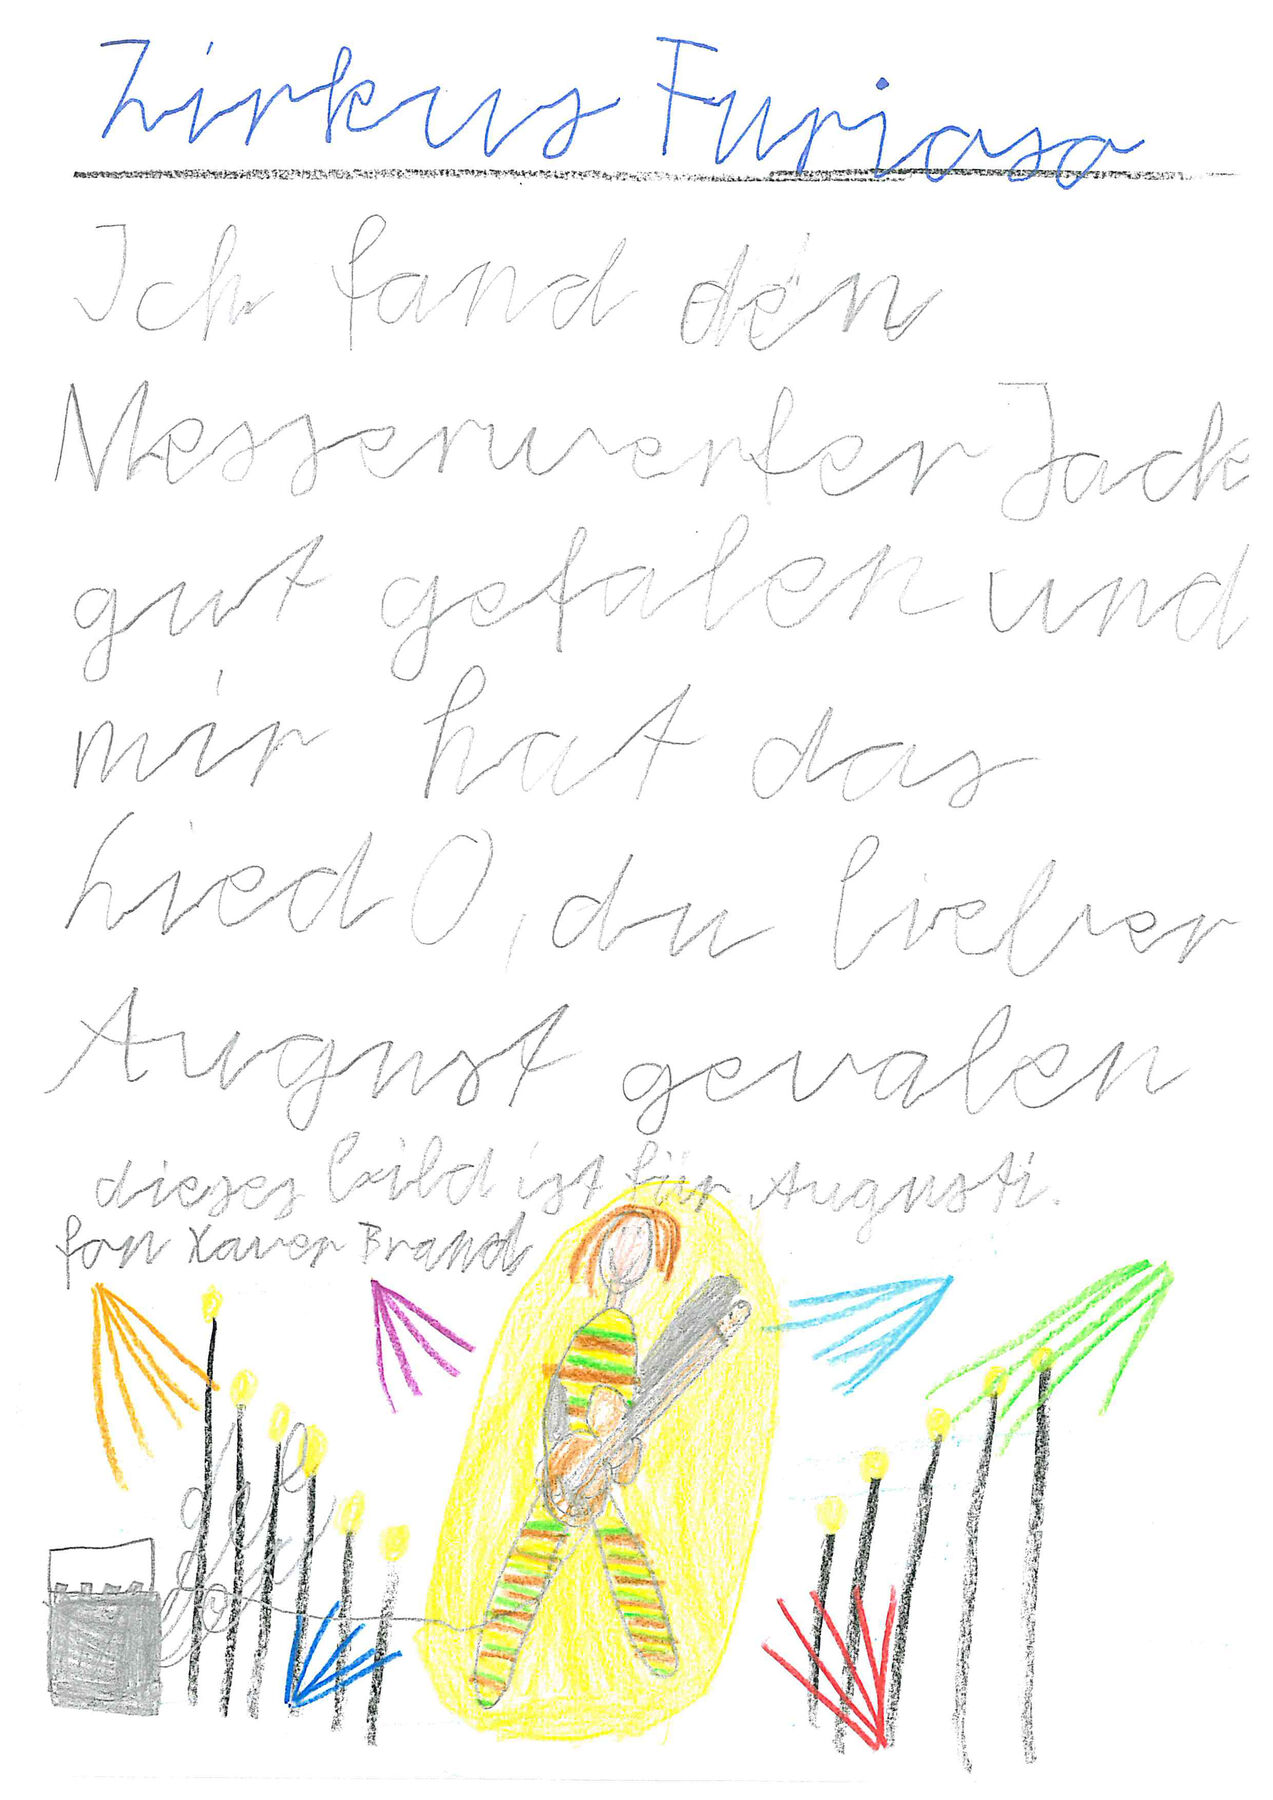 Zirkus Furioso
Ich fand den
Messerwerfer Jack
gut gefalen und
mir hat das
Lied O, du lieber
August gevalen
dieses bild ist für Augusti.
fon Xaver Brand